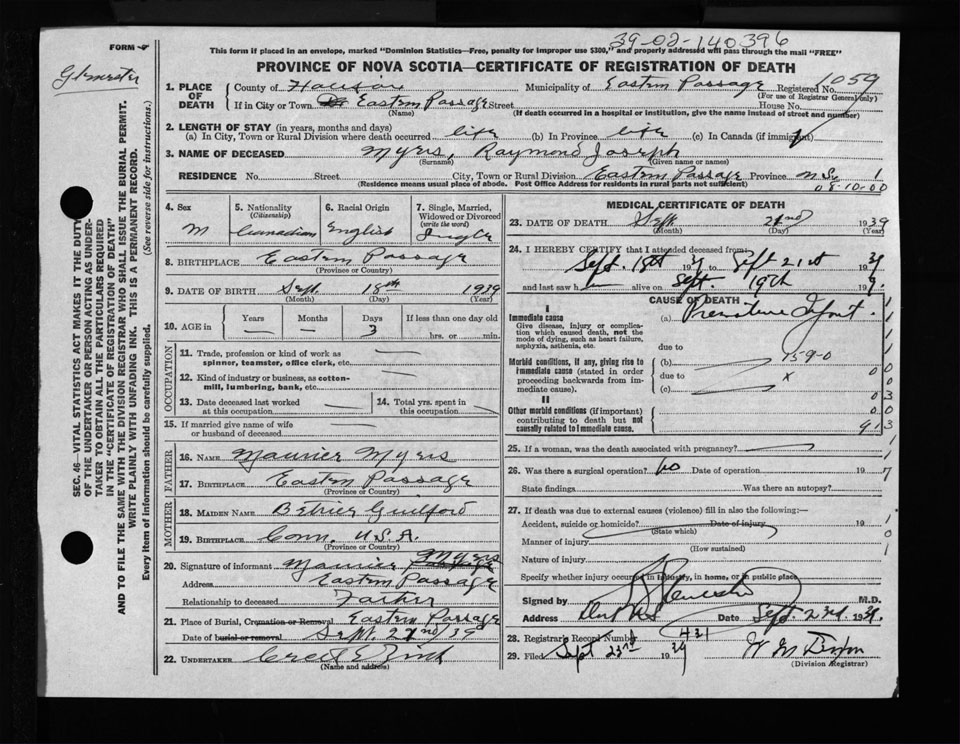 39-02-140396
FORM
This form if placed in an envelope, marked "Dominion Statistics—Free, penalty for improper use $300," and properly addressed will pass through the mail "FREE"
PROVINCE OF NOVA SCOTIA—CERTIFICATE OF REGISTRATION OF DEATH
1. PLACE OF DEATH County of Halifax Municipality of Eastern Passage Registered No. 1059
(For use of Registrar General only)
If in City or Town Eastern Passage Street House No.
(Name) (If death occurred in a hospital or institution, give the name instead of street and number)
2. LENGTH OF STAY (in years, months and days)
(a) In City, Town or Rural Division where death occurred life (b) In Province life (c) In Canada (if immigrant)
3. NAME OF DECEASED Myers, Raymond Joseph
(Surname) (Given name or names)
RESIDENCE No. Street City, Town or Rural Division Eastern Passage Province N.S. 1
(Residence means usual place of abode. Post Office Address for residents in rural parts not sufficient) 08-10-00
4. Sex M
5. Nationality (Citizenship) Canadian
6. Racial Origin English
7. Single, Married, Widowed or Divorced (write the word) Single
8. BIRTHPLACE Eastern Passage
(Province or Country)
9. DATE OF BIRTH Sept. 18th 1939
(Month) (Day) (Year)
10. AGE in Years — Months — Days 3 If less than one day old hrs. or min.
OCCUPATION
11. Trade, profession or kind of work as spinner, teamster, office clerk, etc.
12. Kind of industry or business, as cotton-mill, lumbering, bank, etc.
13. Date deceased last worked at this occupation
14. Total yrs. spent in this occupation
15. If married give name of wife or husband of deceased
FATHER
16. NAME Maurier Myers
17. BIRTHPLACE Eastern Passage
(Province or Country)
MOTHER
18. MAIDEN NAME Guilford
19. BIRTHPLACE Conn. U.S.A.
(Province or Country)
20. Signature of informant Maurier Myers
Address Eastern Passage
Relationship to deceased Father
21. Place of Burial, Cremation or Removal Eastern Passage
Date of burial or removal Sept. 22nd/39
22. UNDERTAKER
(Name and address)
MEDICAL CERTIFICATE OF DEATH
23. DATE OF DEATH Sept 1939
(Month) (Day) (Year)
24. I HEREBY CERTIFY that I attended deceased from
Sept. 18th 1939 to Sept 21st 1939
and last saw h alive on Sept. 19th 199.
CAUSE OF DEATH
I
Immediate cause
Give disease, injury or complication which caused death, not the mode of dying, such as heart failure, asphyxia, asthenia, etc.
(a) Premature Infant.
due to
Morbid conditions, if any, giving rise to immediate cause (stated in order proceeding backwards from immediate cause).
(b) 15-9-0
due to x
(c)
II
Other morbid conditions (if important) contributing to death but not causally related to immediate cause.
913
25. If a woman, was the death associated with pregnancy?
26. Was there a surgical operation? No Date of operation 19
State findings Was there an autopsy?
27. If death was due to external causes (violence) fill in also the following:—
Accident, suicide or homicide? Date of injury 19
(State which)
Manner of injury
(How sustained)
Nature of injury
Specify whether injury occurred in industry, in home, or in public place
Signed by M.D.
Address Date Sept. 23rd. 1939.
28. Registrar's Record Number 431
29. Filed Sept 23rd 1939
(Division Registrar)
SEC. 46—VITAL STATISTICS ACT MAKES IT THE DUTY OF THE UNDERTAKER OR PERSON ACTING AS UNDERTAKER TO OBTAIN ALL THE PARTICULARS REQUIRED IN THE "CERTIFICATE OF REGISTRATION OF DEATH"
AND TO FILE THE SAME WITH THE DIVISION REGISTRAR WHO SHALL ISSUE THE BURIAL PERMIT.
WRITE PLAINLY WITH UNFADING INK. THIS IS A PERMANENT RECORD.
Every item of information should be carefully supplied. (See reverse side for instructions.)